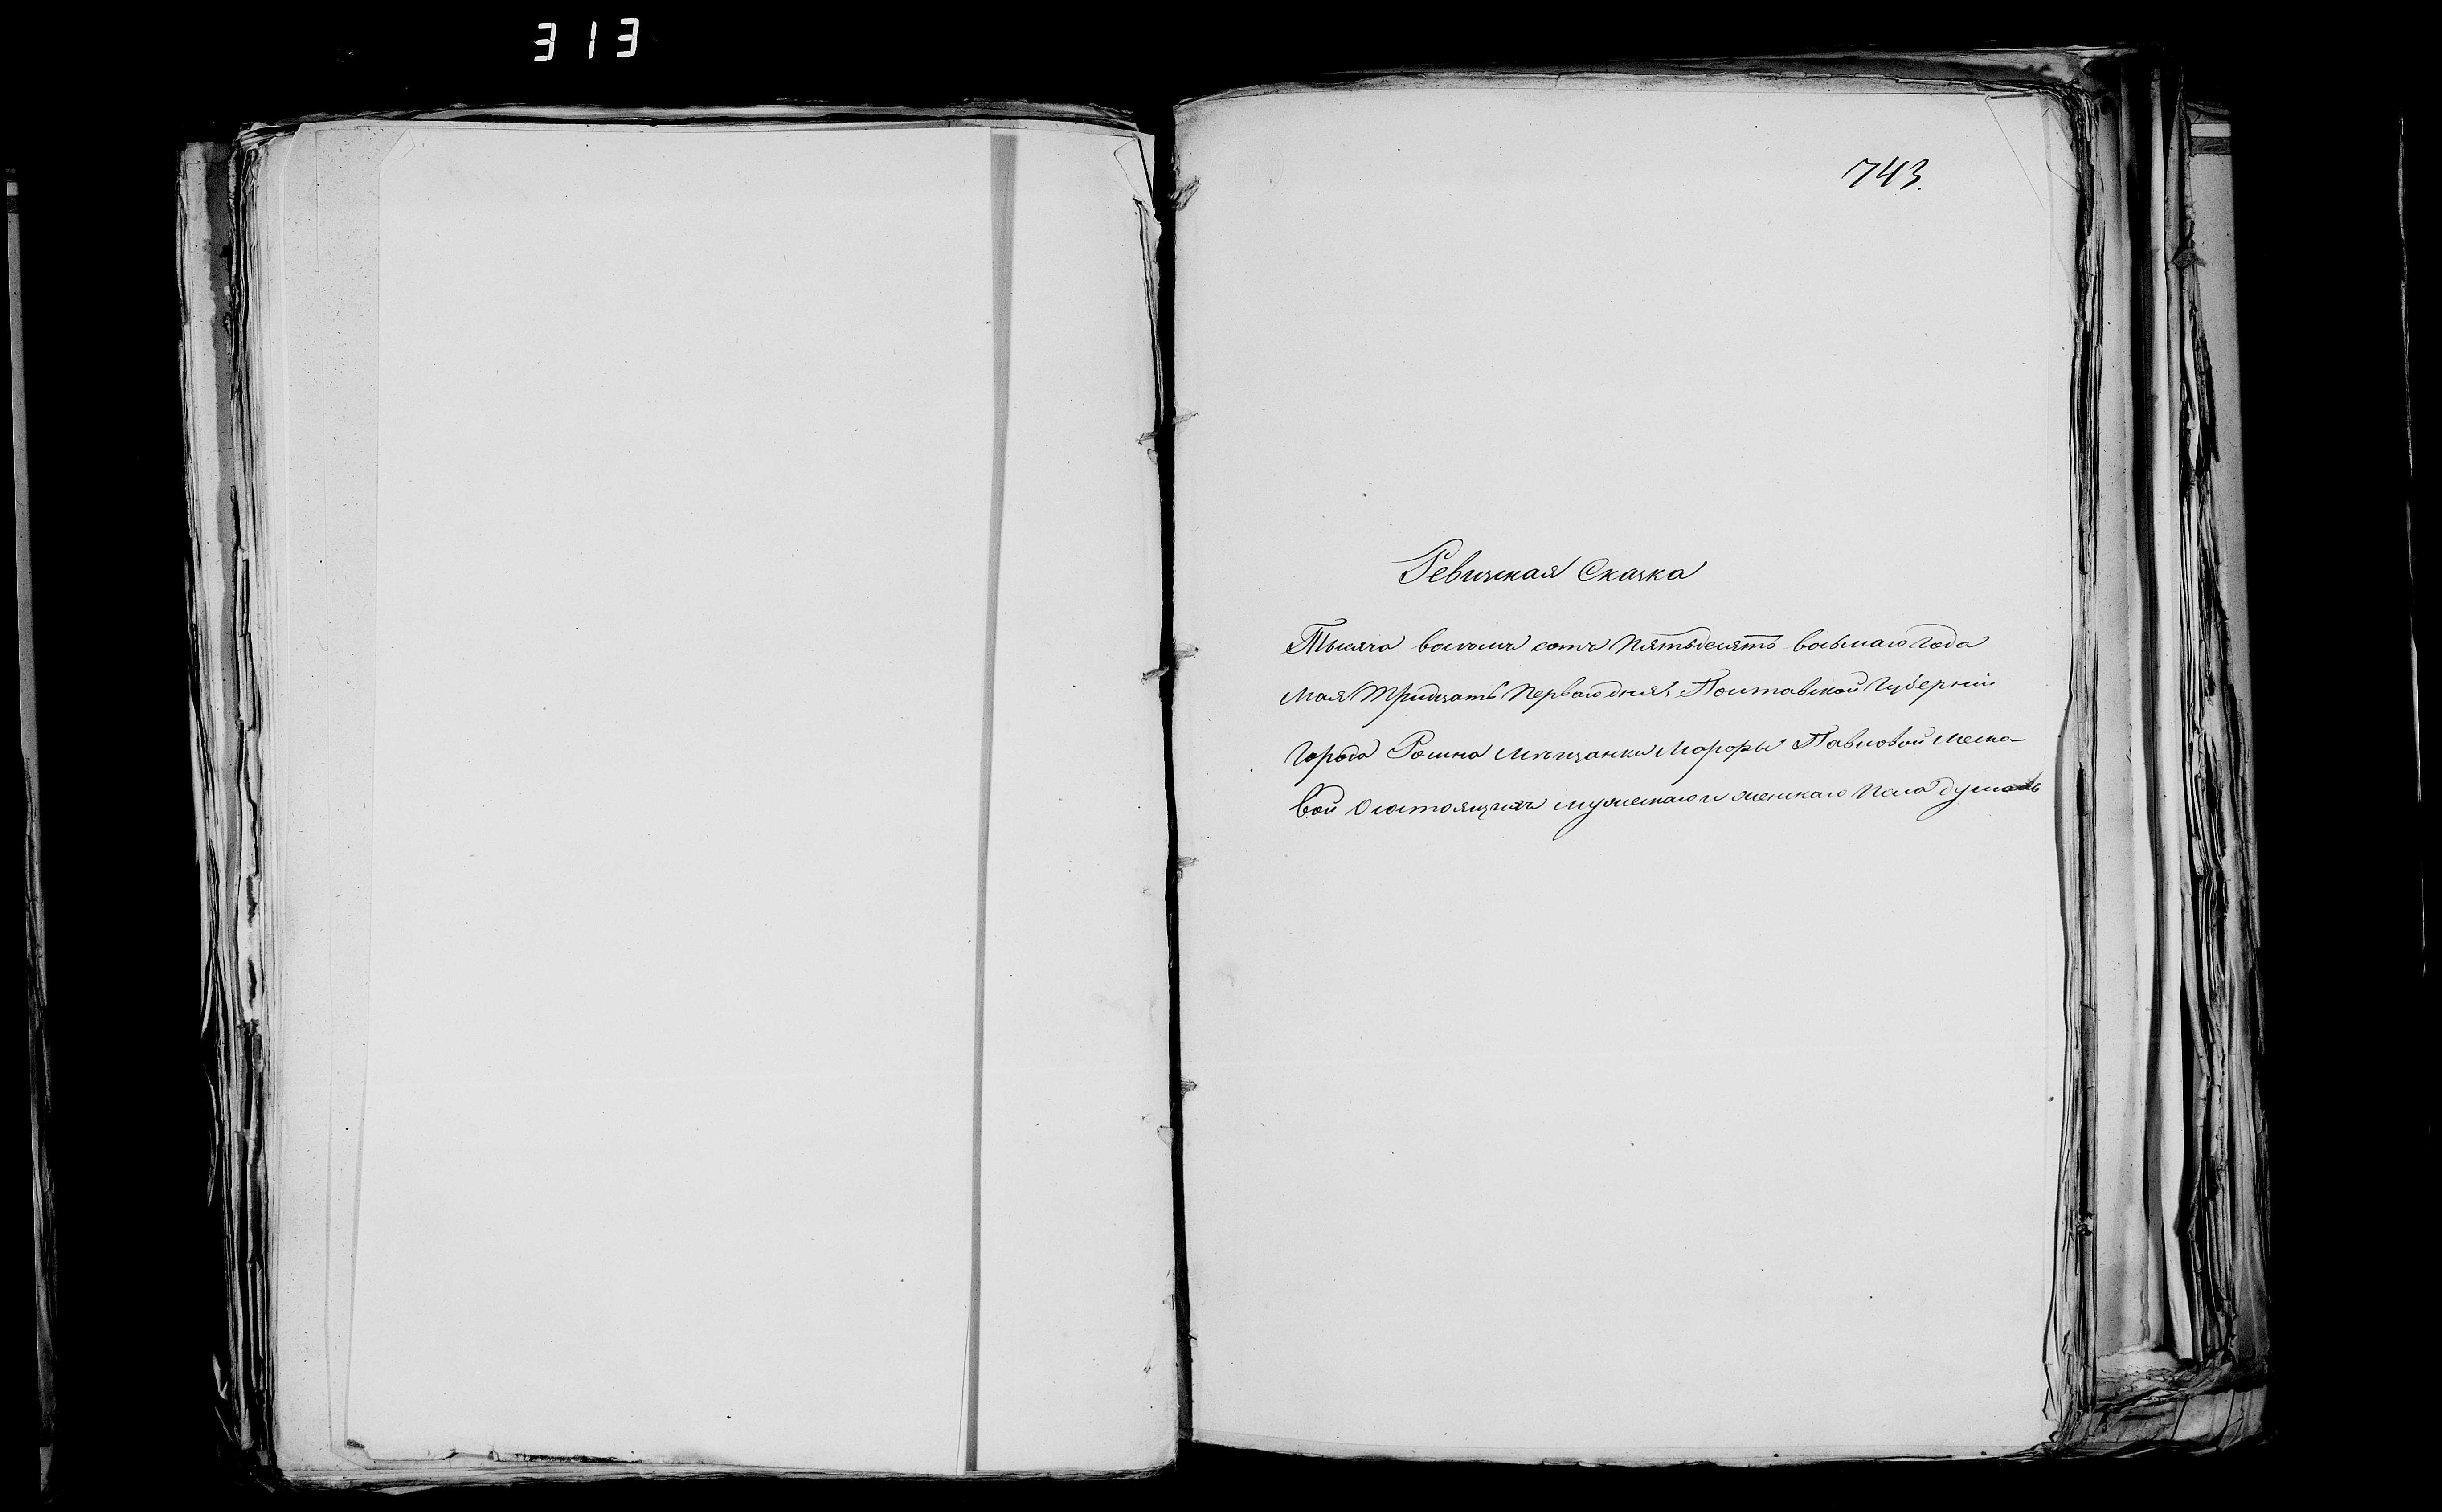 313
743.
Ревизская Сказка
Тысяча восемъ сотъ Пятьдесятъ восьмаго года
Мая Тридцать Первого дня, Полтавской Губерніи
Города Ромна Мѣщанки Марфы Павловой
вой О состоящихъ мужескаго и женскаго Пола душахъ